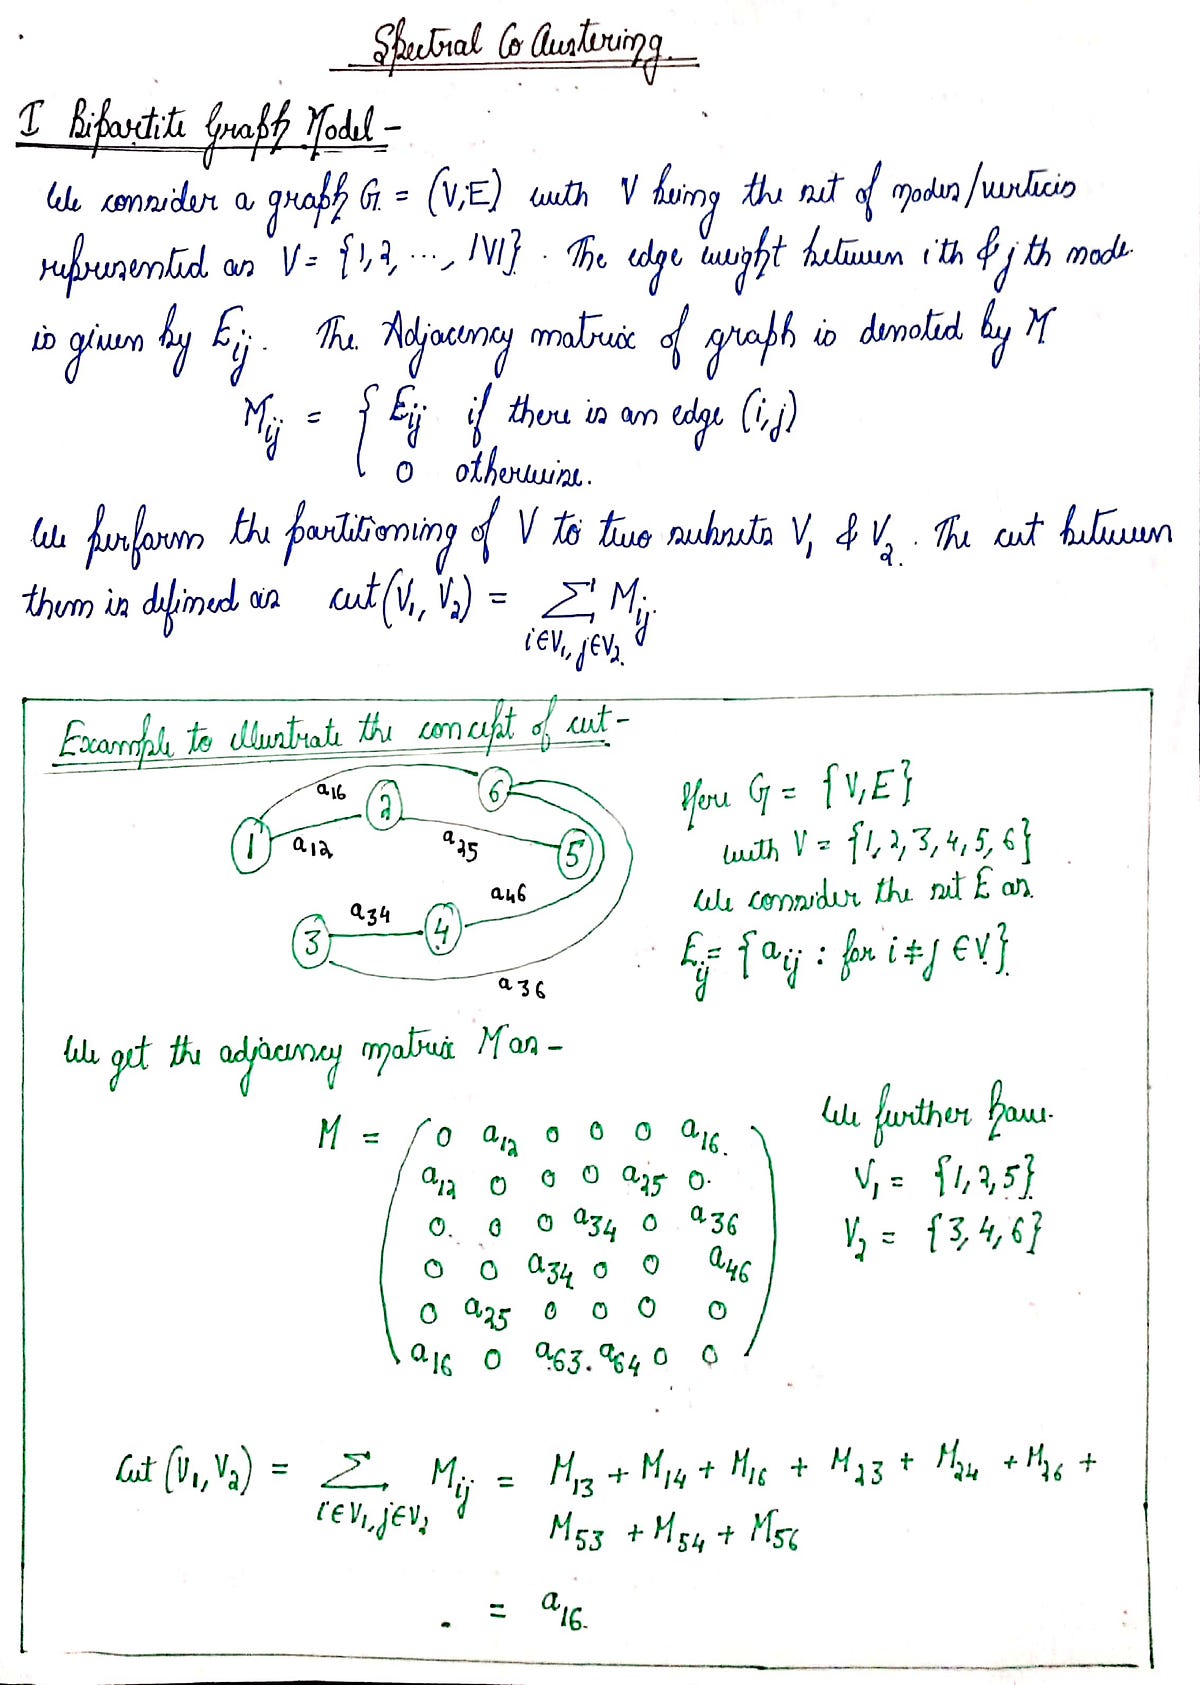 Spectral Co Clustering
I Bipartite Graph Model -
We consider a graph G = (V,E) with V being the set of nodes/verticis
represented as V = {1,2, ..., |V|} . The edge weight between ith & jth node
is given by Eij. The Adjacency matrix of graph is denoted by M
Mij = { Eij if there is an edge (i,j)
0 otherwise.
We perform the partitioning of V to two subsets V1 & V2 . The cut between
them is defined as cut(V1, V2) = Σ Mij
i∈V1, j∈V2
Example to illustrate the concept of cut -
a16 6
2
1 a12 a25 5
a46
a34
3 4
a36
Here G = {V,E}
with V = {1,2,3,4,5,6}
We consider the set E as
Eij = {aij : for i ≠ j ∈ V}
We get the adjacency matrix M as -
M = ( 0 a12 0 0 0 a16
a12 0 0 0 a25 0
0 0 0 a34 0 a36
0 0 a34 0 0 a46
0 a25 0 0 0 0
a16 0 a63 a64 0 0 )
We further have
V1 = {1,2,5}
V2 = {3,4,6}
Cut (V1, V2) = Σ Mij = M13 + M14 + M16 + M23 + M24 + M26 +
i∈V1, j∈V2 M53 + M54 + M56
= a16